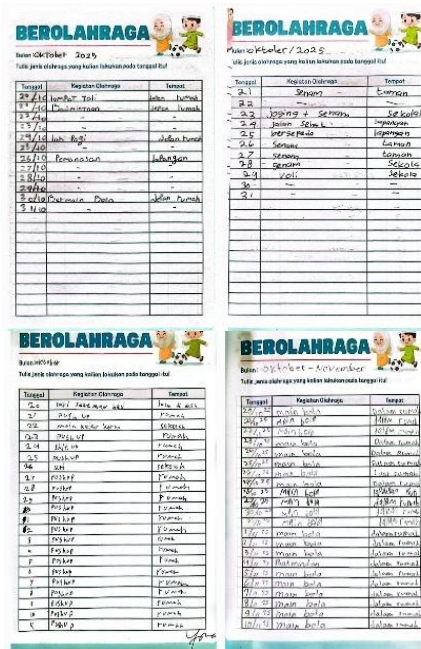 BEROLAHRAGA
Bulan: Oktober 2025
Tulis jenis olahraga yang kalian lakukan pada tanggal itu!
Tanggal Kegiatan Olahraga Tempat
20/10 lompat Tali Jalan rumah
21/10 Badmintoan rumah
22/10 - -
23/10 - -
24/10 lari Pagi Jalan rumah
25/10 - -
26/10 Pemanasan Lapangan
27/10 - -
28/10 - -
29/10 - -
30/10 Bermain Bola Jalan rumah
31/10 - -
BEROLAHRAGA
Bulan: oktober/2025
Tulis jenis olahraga yang kalian lakukan pada tanggal itu!
Tanggal Kegiatan Olahraga Tempat
21 Senam taman
22 - -
23 Joging + senam Sekola
24 jalan sehat lapangan
25 bersepeda lapangan
26 Senam taman
27 senam taman
28 senam Sekola
29 voli Sekola
30 - -
31 - -
BEROLAHRAGA
Bulan: oktober
Tulis jenis olahraga yang kalian lakukan pada tanggal itu!
Tanggal Kegiatan Olahraga Tempat
20 lari
21 push up rumah
22 main sekolah
23 push up rumah
24 shit up rumah
25 push up rumah
26 sekolah
27 push up rumah
28 push up rumah
29 push up rumah
push up rumah
push up rumah
push up rumah
push up rumah
push up rumah
push up rumah
push up rumah
7 push up rumah
8 push up rumah
9 push up rumah
10 push up rumah
push up rumah
BEROLAHRAGA
Bulan: Oktober - November
Tulis jenis olahraga yang kalian lakukan pada tanggal itu!
Tanggal Kegiatan Olahraga Tempat
main bola Dalam rumah
main bola Dalam rumah
main bola Dalam rumah
main bola Dalam rumah
main bola Dalam rumah
main bola Dalam rumah
main bola rumah
main bola Dalam rumah
main bola
main bola dalam rumah
main bola dalam rumah
main bola dalam rumah
1/11 25 main bola dalam rumah
2/11 25 main bola dalam rumah
3/11 25 main bola dalam rumah
4/11 25 Badminton dalam rumah
5/11 25 main bola dalam rumah
6/11 25 main bola dalam rumah
7/11 25 main bola dalam rumah
8/11 25 main bola dalam rumah
9/11 25 main bola dalam rumah
10/11 25 main bola dalam rumah